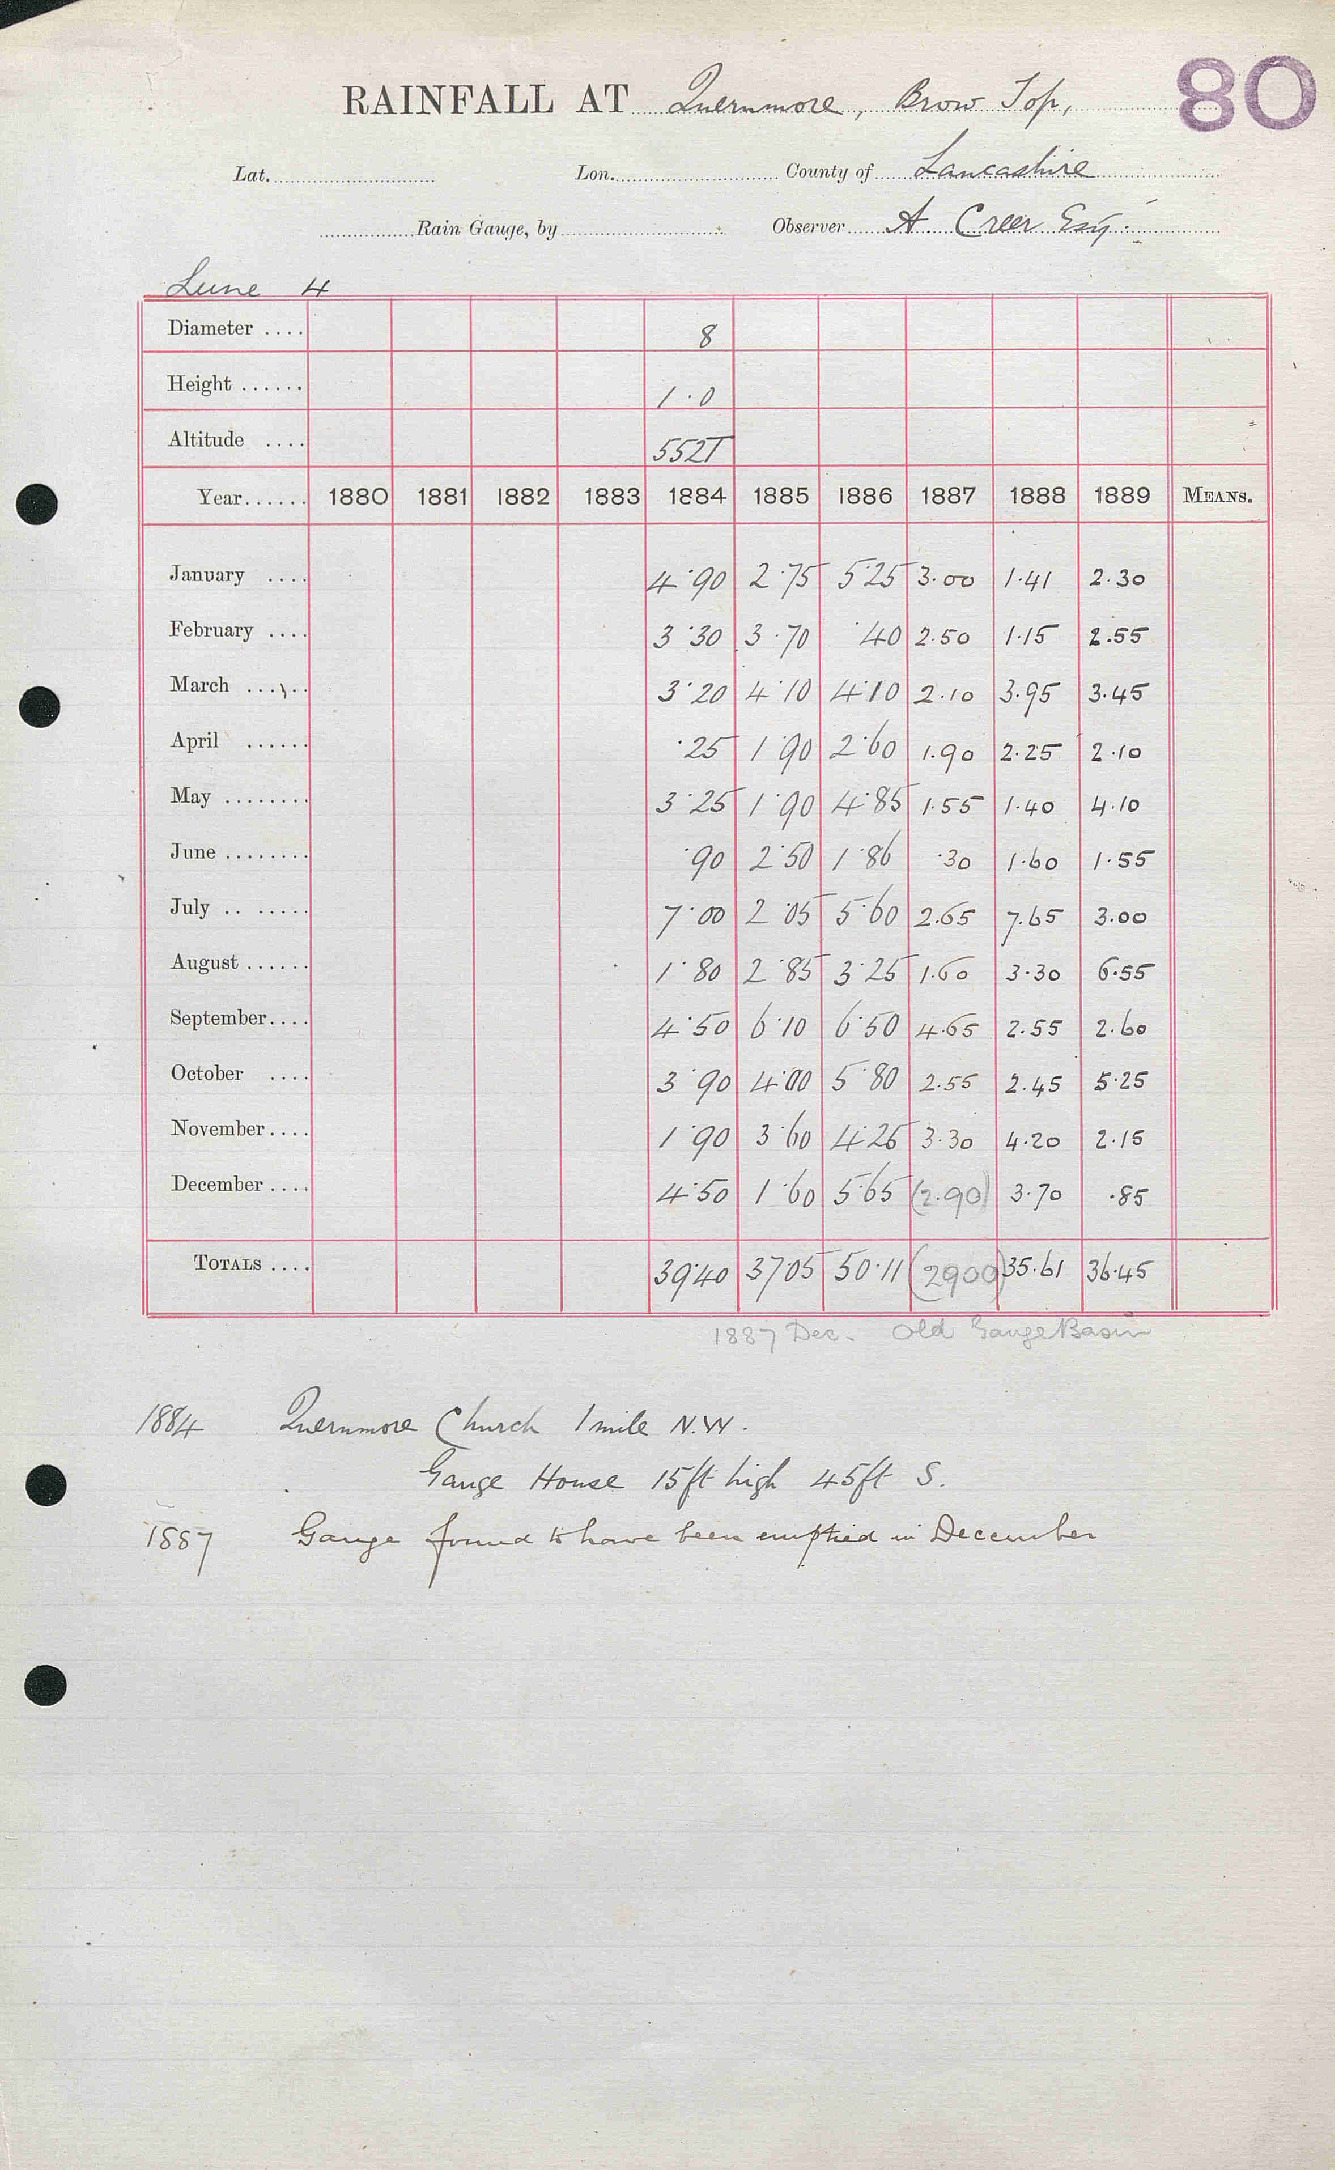 80
RAINFALL AT Quernmore, Brow Top,
Lat. Lon. County of Lancashire
Rain Gauge, by Observer A Creer Esq.
Lune 4
Diameter .... 8
Height ...... 1.0
Altitude .... 552T
Year...... 1880 1881 1882 1883 1884 1885 1886 1887 1888 1889 MEANS.
January .... 4.90 2.75 5.25 3.00 1.41 2.30
February .... 3.30 3.70 .40 2.50 1.15 2.55
March ...... 3.20 4.10 4.10 2.10 3.95 3.45
April ...... .25 1.90 2.60 1.90 2.25 2.10
May ........ 3.25 1.90 4.85 1.55 1.40 4.10
June ........ .90 2.50 1.86 .30 1.60 1.55
July .. ..... 7.00 2.05 5.60 2.65 7.65 3.00
August ...... 1.80 2.85 3.25 1.60 3.30 6.55
September.... 4.50 6.10 6.50 4.65 2.55 2.60
October .... 3.90 4.00 5.80 2.55 2.45 5.25
November.... 1.90 3.60 4.25 3.30 4.20 2.15
December .... 4.50 1.60 5.65 (2.90) 3.70 .85
TOTALS .... 39.40 37.05 50.11 (2900) 35.61 36.45
1887 Dec. Old Gauge Basin
1884 Quernmore Church 1 mile N.W.
Gauge House 15ft high 45ft S.
1887 Gauge found to have been emptied in December